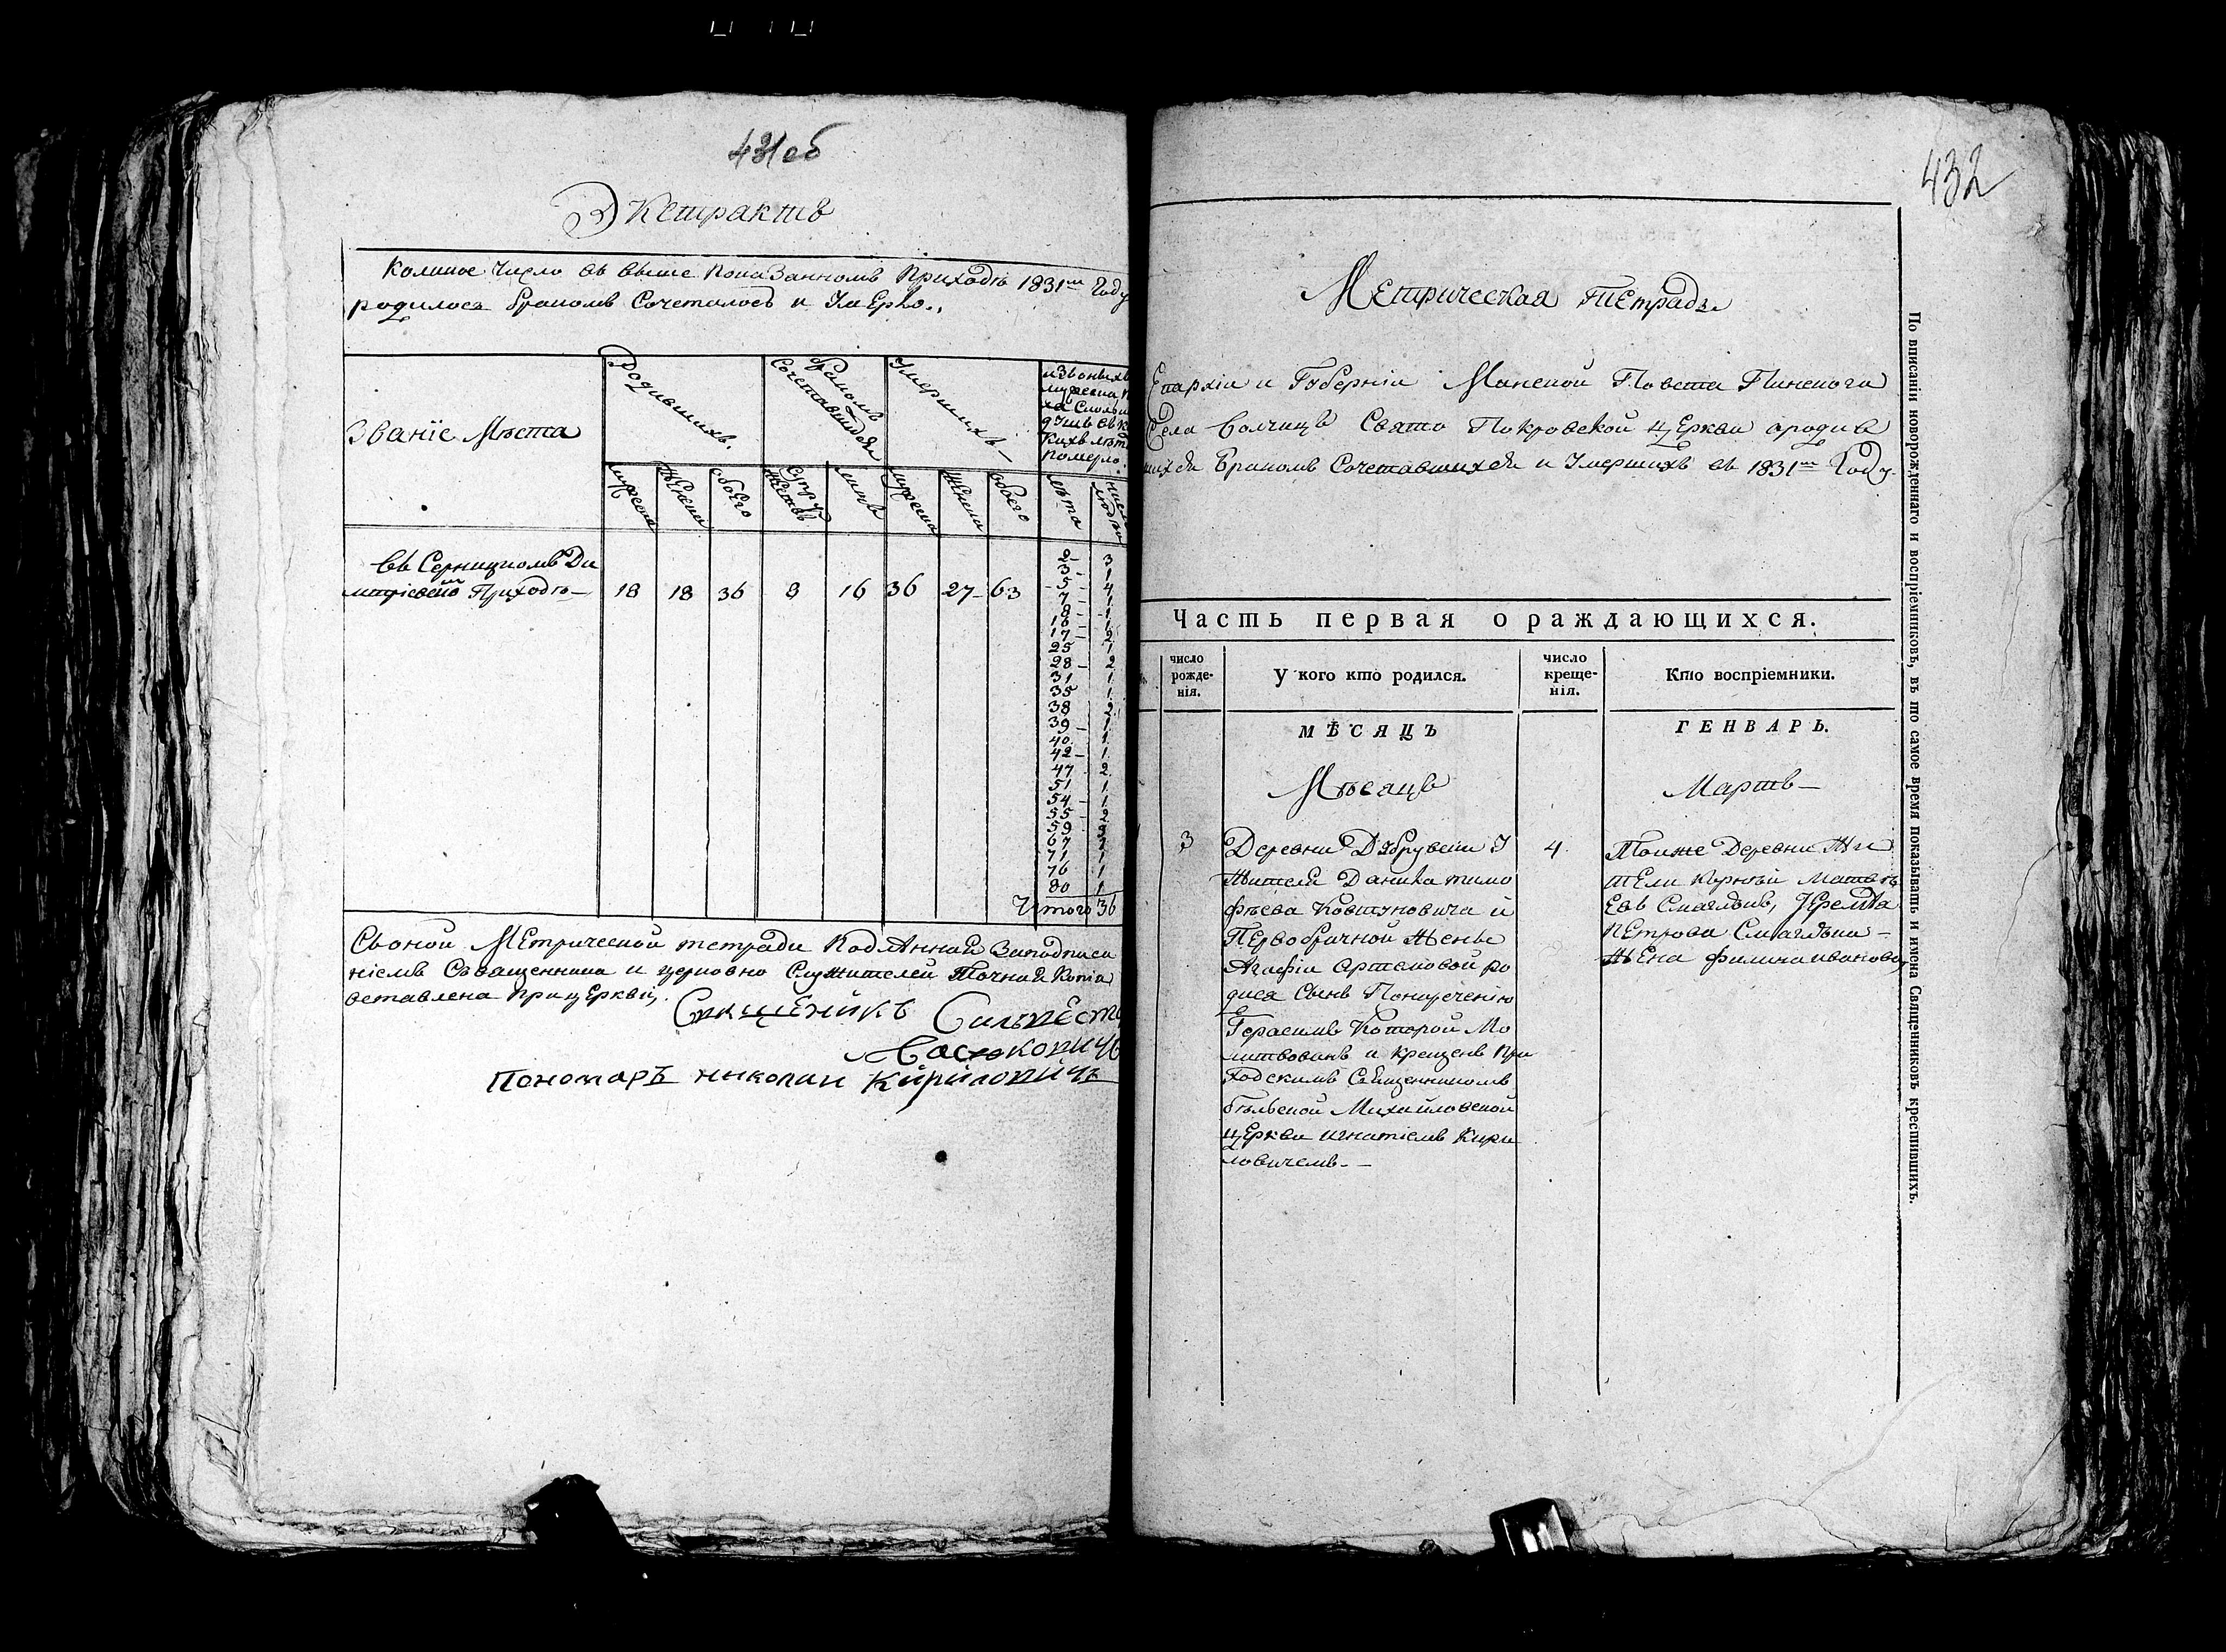 431об
Экстрактъ
Коликое Число въ выше показанномъ Приходѣ 1831го Году
родилось бракомъ Сочеталось и Умерло.,
Званїе Мѣста
Родившихъ.
бракомъ Сочетавшихся
Умершихъ
изъ оныхъ
мужеска п
ла Сколько
душъ въ ка
кихъ лѣт
померло.
мужеска
женска
обоего
Супружествъ
лицъ
мужеска
женска
обоего
лѣта
число людей
Въ Серницкомъ Ди
митріевской Приходѣ— 18 18 36 8 16 36 27 63
2 3
3 1
5 4
7 1
8 1
16 1
17 2
25 1
28 2
31 1
35 1
38 2
39 1
40 1
42 1
47 2
51 1
54 1
55 2
59
67
71 1
76 1
80 1
Итого 36
Съ оной Метрической тетради подлѣнная Заподписа
ніемъ Священника и церковно Служителей Точная Копіа
оставлена при церквѣ.
Священикъ Сильвест
Пономаръ николаи Кириловичъ
432
Метрическая Тетрадь
Епархіи и Губерніи Минской Повета Пинскога
Села Волчицъ Свято Покровской церкви ародив
шихся Бракомъ Сочетавшихся и Умершихъ въ 1831мъ Году.
Часть первая о раждающихся.
число
рожде-
нія.
У кого кто родился.
число
креще-
нія.
Кто воспріемники.
МѢСЯЦЪ
ГЕНВАРЬ.
Мѣсяцъ
Мартъ—
3
Деревни
Жителя Данила тимо
фѣева Ковтуновича и
Первобрачной Жены
Агафіи Артемовой ро
дися Сынъ Понареченію
Герасимъ Которой Мо
литвованъ и крещенъ При
ходскимъ Священникомъ
бѣльской Михайловской
церкви игнатіемъ Кири
ловичемъ.—
4
Тоиже Деревни Жи
тели Корнѣй Матвѣ
евъ
Петрова
Жена филипа иванова
По вписаніи новорожденнаго и воспріемниковъ, въ то самое время показывать и имена Священниковъ крестившихъ.